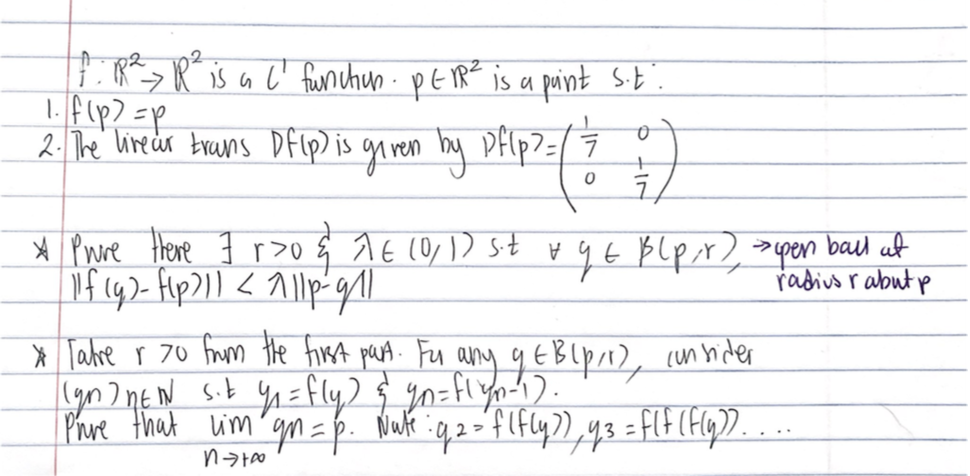 f: ℝ² → ℝ² is a C¹ function. p ∈ ℝ² is a point s.t.
1. f(p) = p
2. The linear trans Df(p) is given by Df(p) = (1/7 0
0 1/7)
* Prove there ∃ r>0 & λ ∈ (0,1) s.t ∀ q ∈ B(p,r), → open ball of
||f(q)-f(p)|| < λ||p-q|| radius r about p
* Take r >0 from the first part. For any q ∈ B(p,r), consider
(qn)n∈ℕ s.t q1 = f(q) & qn = f(qn-1).
Prove that lim qn = p. Note: q2 = f(f(q)), q3 = f(f(f(q)). . . .
n→+∞